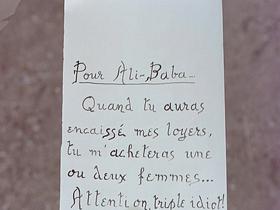 Pour Ali-Baba...
Quand tu auras
encaissé mes loyers,
tu m'achèteras une
ou deux femmes...
Attention, triple idiot!